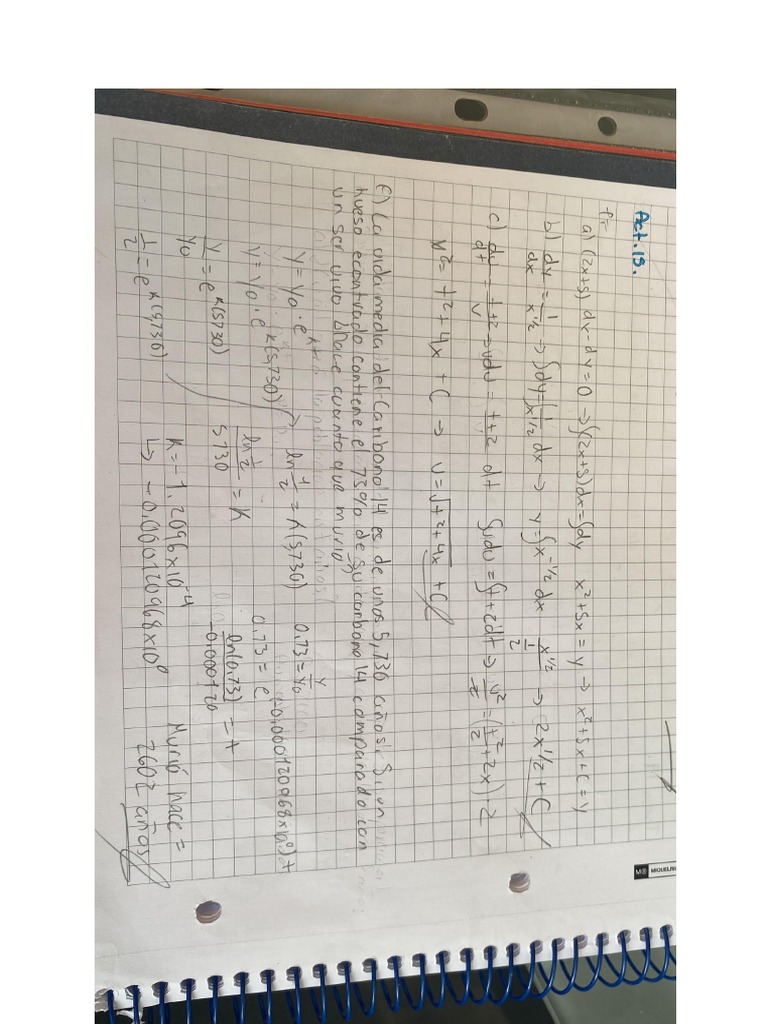 Act. 15.
a) (2x+5) dx - dy = 0 → ∫(2x+5)dx = ∫dy x² + 5x = y → x² + 5x + C = y
b) dy/dx = 1/x^1/2 → ∫dy = ∫1/x^1/2 dx → y = ∫x^-1/2 dx x^1/2 / 1/2 → 2x^1/2 + C
c) dv/dt = t+2/v → vdv = t+2 dt ∫vdv = ∫t+2dt → v²/2 = (t²/2 + 2x)·2
v² = t² + 4x + C → v = √t² + 4x + C
E) La vida media del Caribono 14 es de unos 5,730 años. Si un
hueso econtrado contiene el 73% de su carbono 14 comparado con
un ser vivo ¿Hace cuanto que murio?
y = y₀ · e^kt
y = y₀ · e^k(5,730)
y/y₀ = e^k(5730)
1/2 = e^k(5,730)
ln 1/2 = k(5,730)
ln 1/2 / 5730 = k
k = -1.2096x10^-4
↳ -0.000120968x10^0
0.73 = y/y₀
0.73 = e^(-0.000120968x10^0)t
ln(0.73) / -0.000120 = t
Murió hace =
2602 años
M MIQUELRI